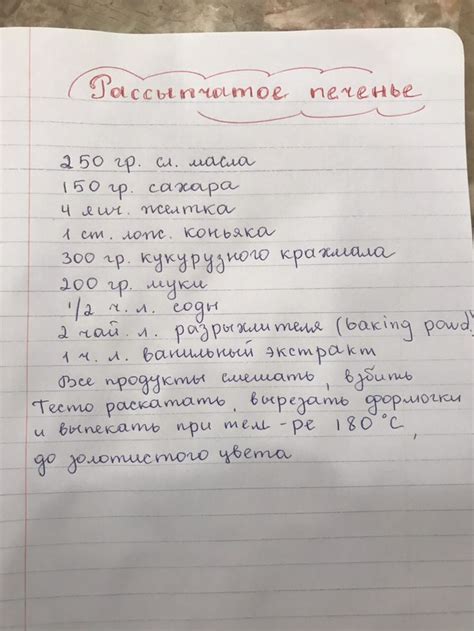 Рассыпчатое печенье
250 гр. сл. масла
150 гр. сахара
4 яич. желтка
1 ст. лож. коньяка
300 гр. кукурузного крахмала
200 гр. муки
1/2 ч. л. соды
2 чай. л. разрыхлителя (baking powd.)
1 ч. л. ванильный экстракт
Все продукты смешать, взбить
Тесто раскатать, вырезать формочки
и выпекать при тем-ре 180°C,
до золотистого цвета